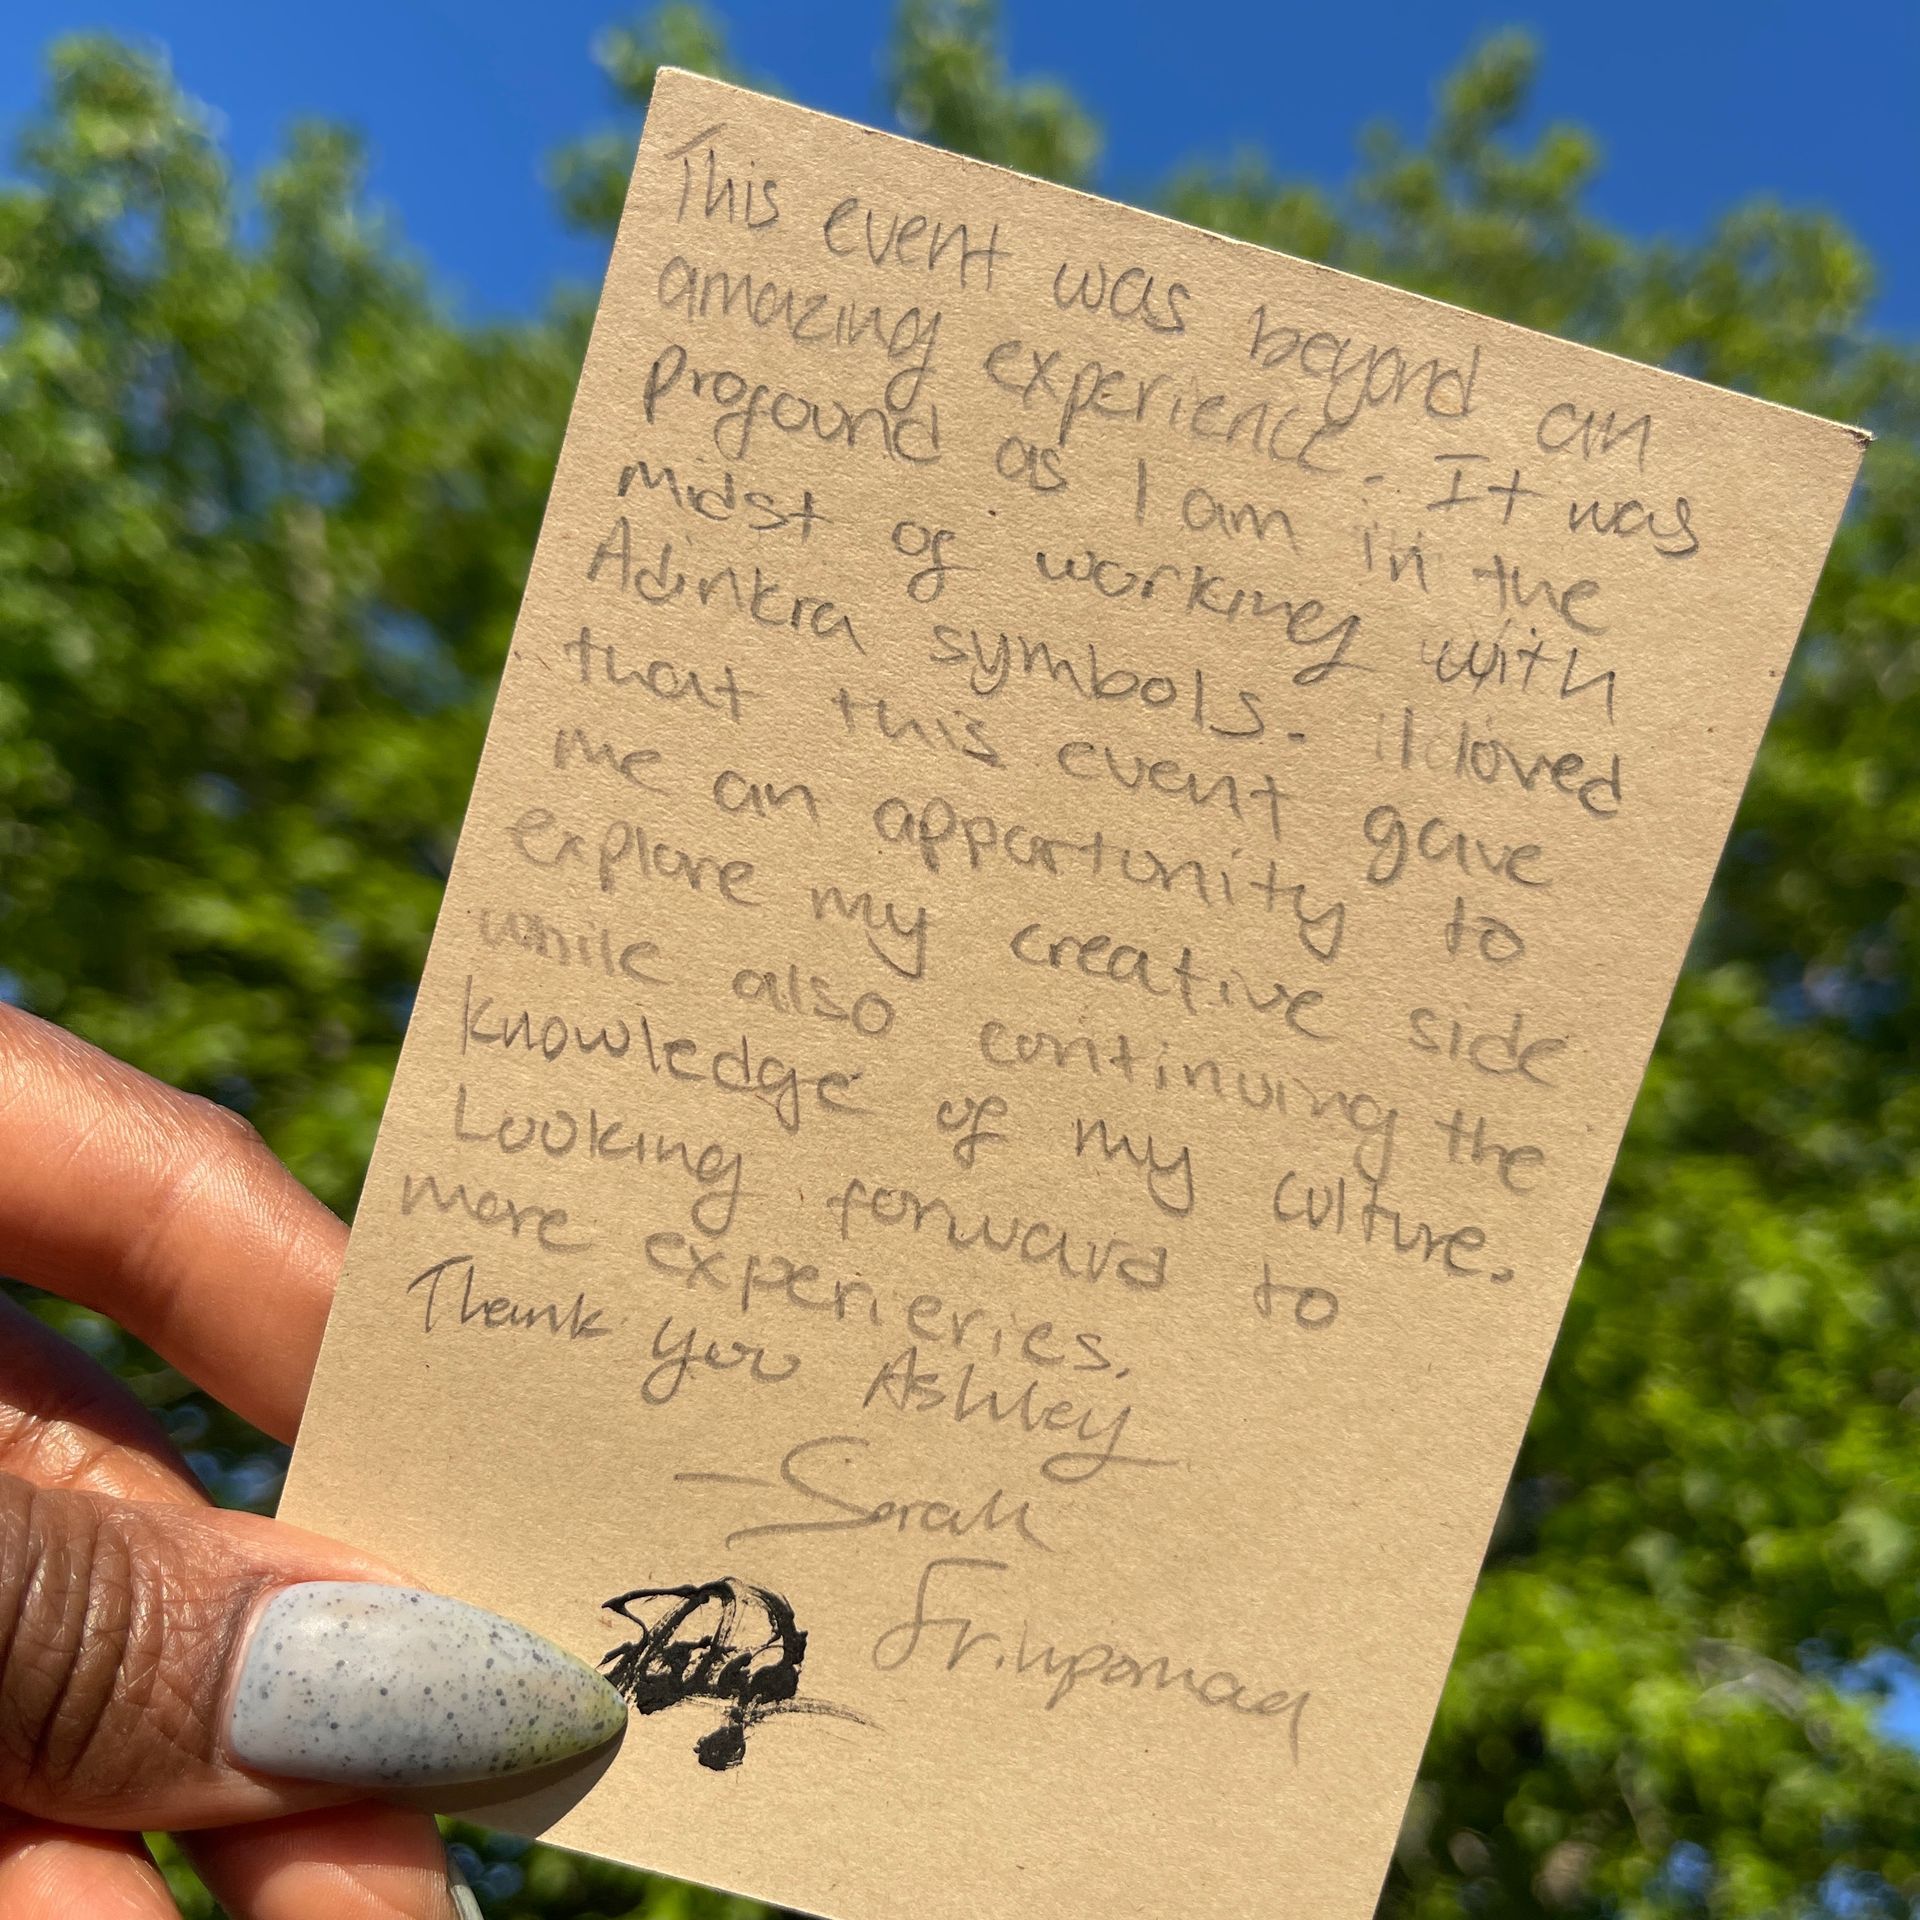 This event was beyond an
amazing experience. It was
profound as I am in the
midst of working with
Adinkra symbols. I loved
that this event gave
me an opportunity to
explore my creative side
while also continuing the
knowledge of my culture.
Looking forward to
more experieries.
Thank you Ashley
-Sarah